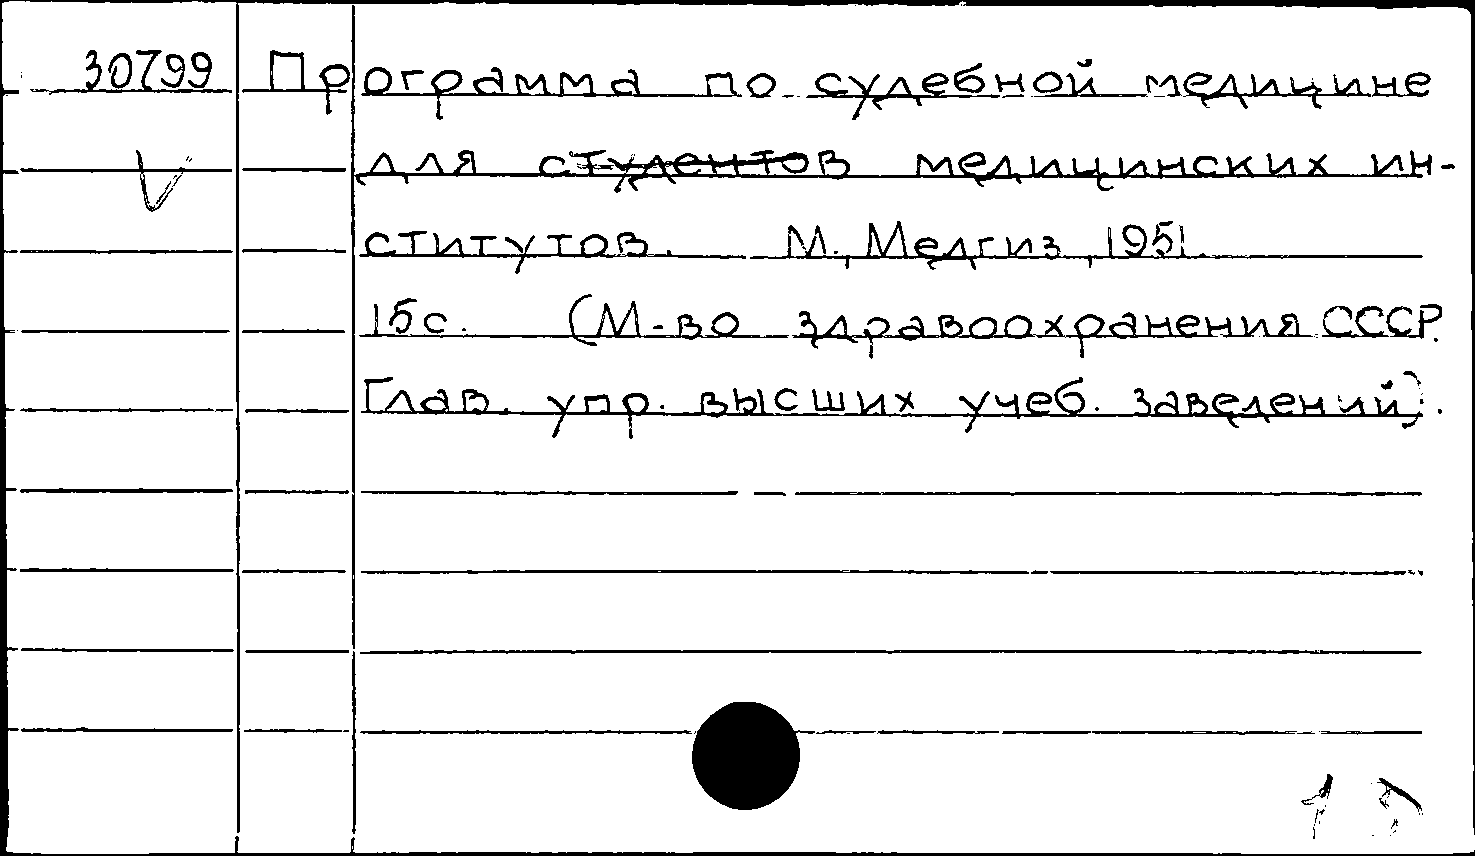 30799 Программа по судебной медицине
для студентов медицинских ин-
ститутов. М., Медгиз, 1951.
15с. (М-во здравоохранения СССР.
Глав. упр. высших учеб. заведений).